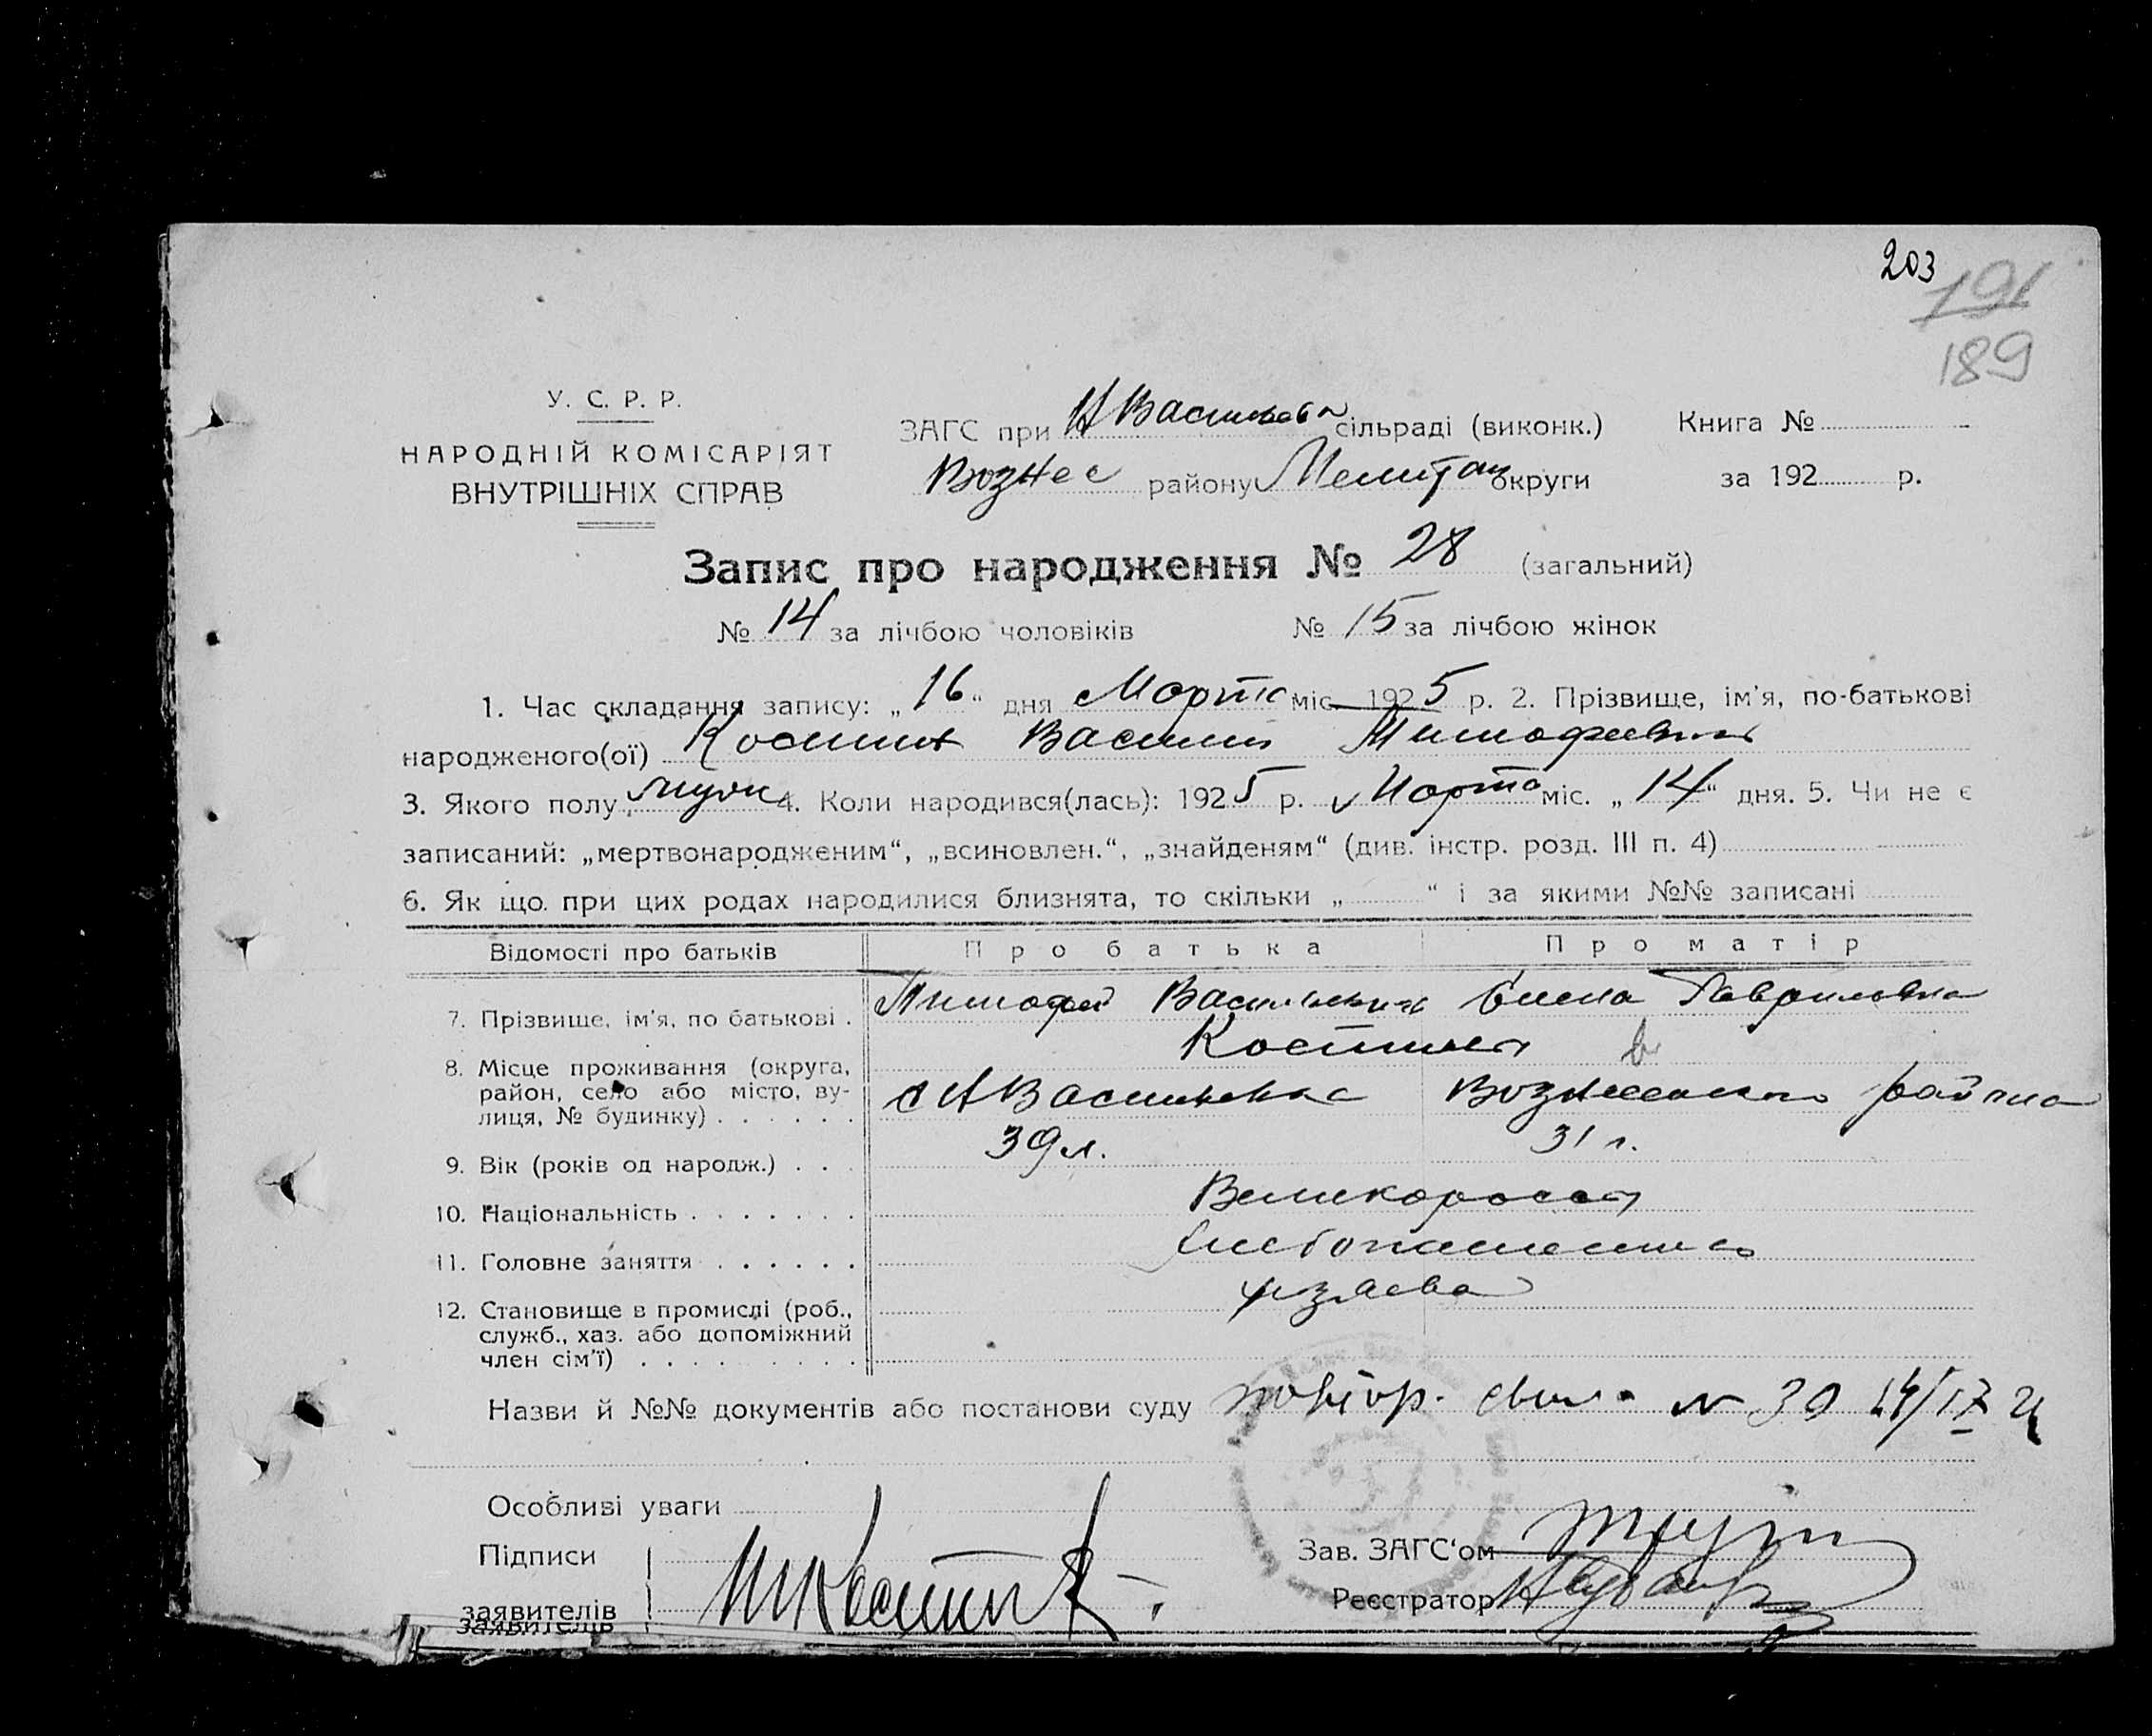 203
191
189
У. С. Р. Р.
НАРОДНІЙ КОМІСАРІЯТ
ВНУТРІШНІХ СПРАВ
ЗАГС при Н Васильев сільраді (виконк.) Книга №
Вознес району Мелитоп округи за 192 р.
Запис про народження № 28 (загальний)
№ 14 за лічбою чоловіків № 15 за лічбою жінок
1. Час складання запису: „16“ дня Марта міс. 1925 р. 2. Прізвище, ім'я, по-батькові
народженого(ої) Костин Василий Тимофеевич
3. Якого полу муж 4. Коли народився(лась): 1925 р. Марта міс. „14“ дня. 5. Чи не є
записаний: „мертвонародженим“, „всиновлен.“, „знайденям“ (див. інстр. розд. III п. 4)
6. Як що при цих родах народилися близнята, то скільки „ “ і за якими №№ записані
Відомості про батьків Про батька Про матір
7. Прізвище, ім'я, по батькові . Тимофей Васильевич Елена Гавриловна
Костины
8. Місце проживання (округа,
район, село або місто, ву-
лиця, № будинку) . . . . . . с Н Васильевка Вознесенского района
9. Вік (років од народж.) . . . 39 л. 31 г.
10. Національність . . . . . . . Великороссы
11. Головне заняття . . . . . . Хлебопашество
12. Становище в промислі (роб.,
служб., хаз. або допоміжний
член сім'ї) . . . . . . . . . хозяева
Назви й №№ документів або постанови суду повтор. № 30
Особливі уваги
Підписи
заявителів Костин
Зав. ЗАГС'ом
Реєстратор
заявителів